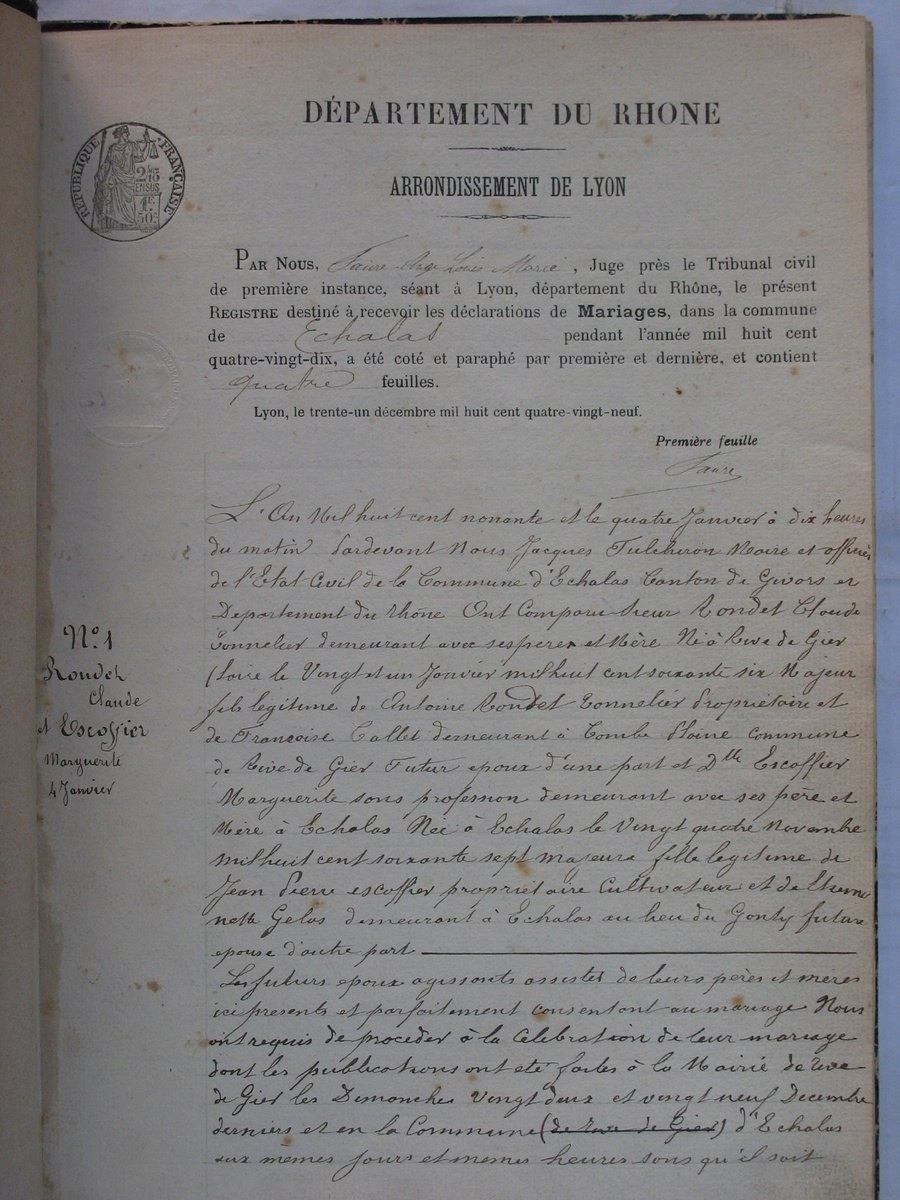 DÉPARTEMENT DU RHONE
RÉPUBLIQUE FRANÇAISE
2/10 EN SUS
1F 50c
ARRONDISSEMENT DE LYON
PAR NOUS, Faure Louis Marie, Juge près le Tribunal civil
de première instance, séant à Lyon, département du Rhône, le présent
REGISTRE destiné à recevoir les déclarations de Mariages, dans la commune
de Echalas pendant l'année mil huit cent
quatre-vingt-dix, a été coté et paraphé par première et dernière, et contient
quatre feuilles.
Lyon, le trente-un décembre mil huit cent quatre-vingt-neuf.
Première feuille
Faure
N° 1
Rondet
Claude
et Escoffier
Marguerite
4 Janvier
L'An Mil huit cent nonante et le quatre Janvier à dix heures
du matin Pardevant Nous Jacques Tulchiron Maire et officier
de l'Etat Civil de la Commune d'Echalas Canton de Givors et
Departement du Rhône Ont Comparu Sieur Rondet Claude
Tonnelier demeurant avec ses pere et Mère Né à Rive de Gier
(Loire le Vingt et un Janvier mil huit cent soixante six Majeur
fils legitime de Antoine Rondet Tonnelier Propriétaire et
de Francoise Callet demeurant à Combe Plaine Commune
de Rive de Gier Futur epoux d'une part et Dlle Escoffier
Marguerite sans profession demeurant avec ses père et
Mère à Echalas Née à Echalas le Vingt quatre Novembre
mil huit cent soixante sept majeure fille legitime de
Jean Pierre escoffier propriétaire Cultivateur et de
nette Gelas demeurant à Echalas au lieu du Gonty future
epouse d'autre part
Les futurs epoux agissants assistés de leurs pères et mères
ici presents et parfaitement consentant au mariage Nous
ont requis de proceder à la Célébration de leur mariage
dont les publications ont eté faites à la Mairie de Rive
de Gier les Dimanches Vingt deux et vingt neuf Decembre
derniers et en la Commune (de Rive de Gier) d'Echalas
aux mêmes jours et memes heures sans qu'il soit